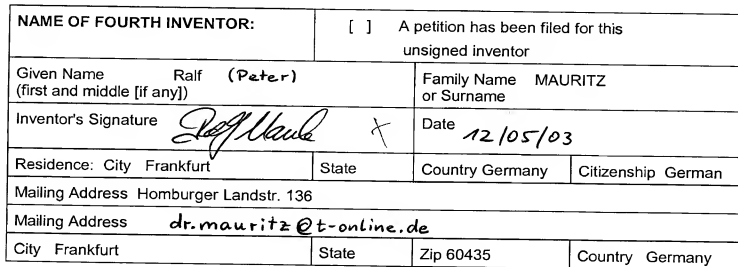 NAME OF FOURTH INVENTOR: [ ] A petition has been filed for this
unsigned inventor
Given Name Ralf (Peter) Family Name MAURITZ
(first and middle [if any]) or Surname
Inventor's Signature X Date 12/05/03
Residence: City Frankfurt State Country Germany Citizenship German
Mailing Address Homburger Landstr. 136
Mailing Address dr.mauritz@t-online.de
City Frankfurt State Zip 60435 Country Germany